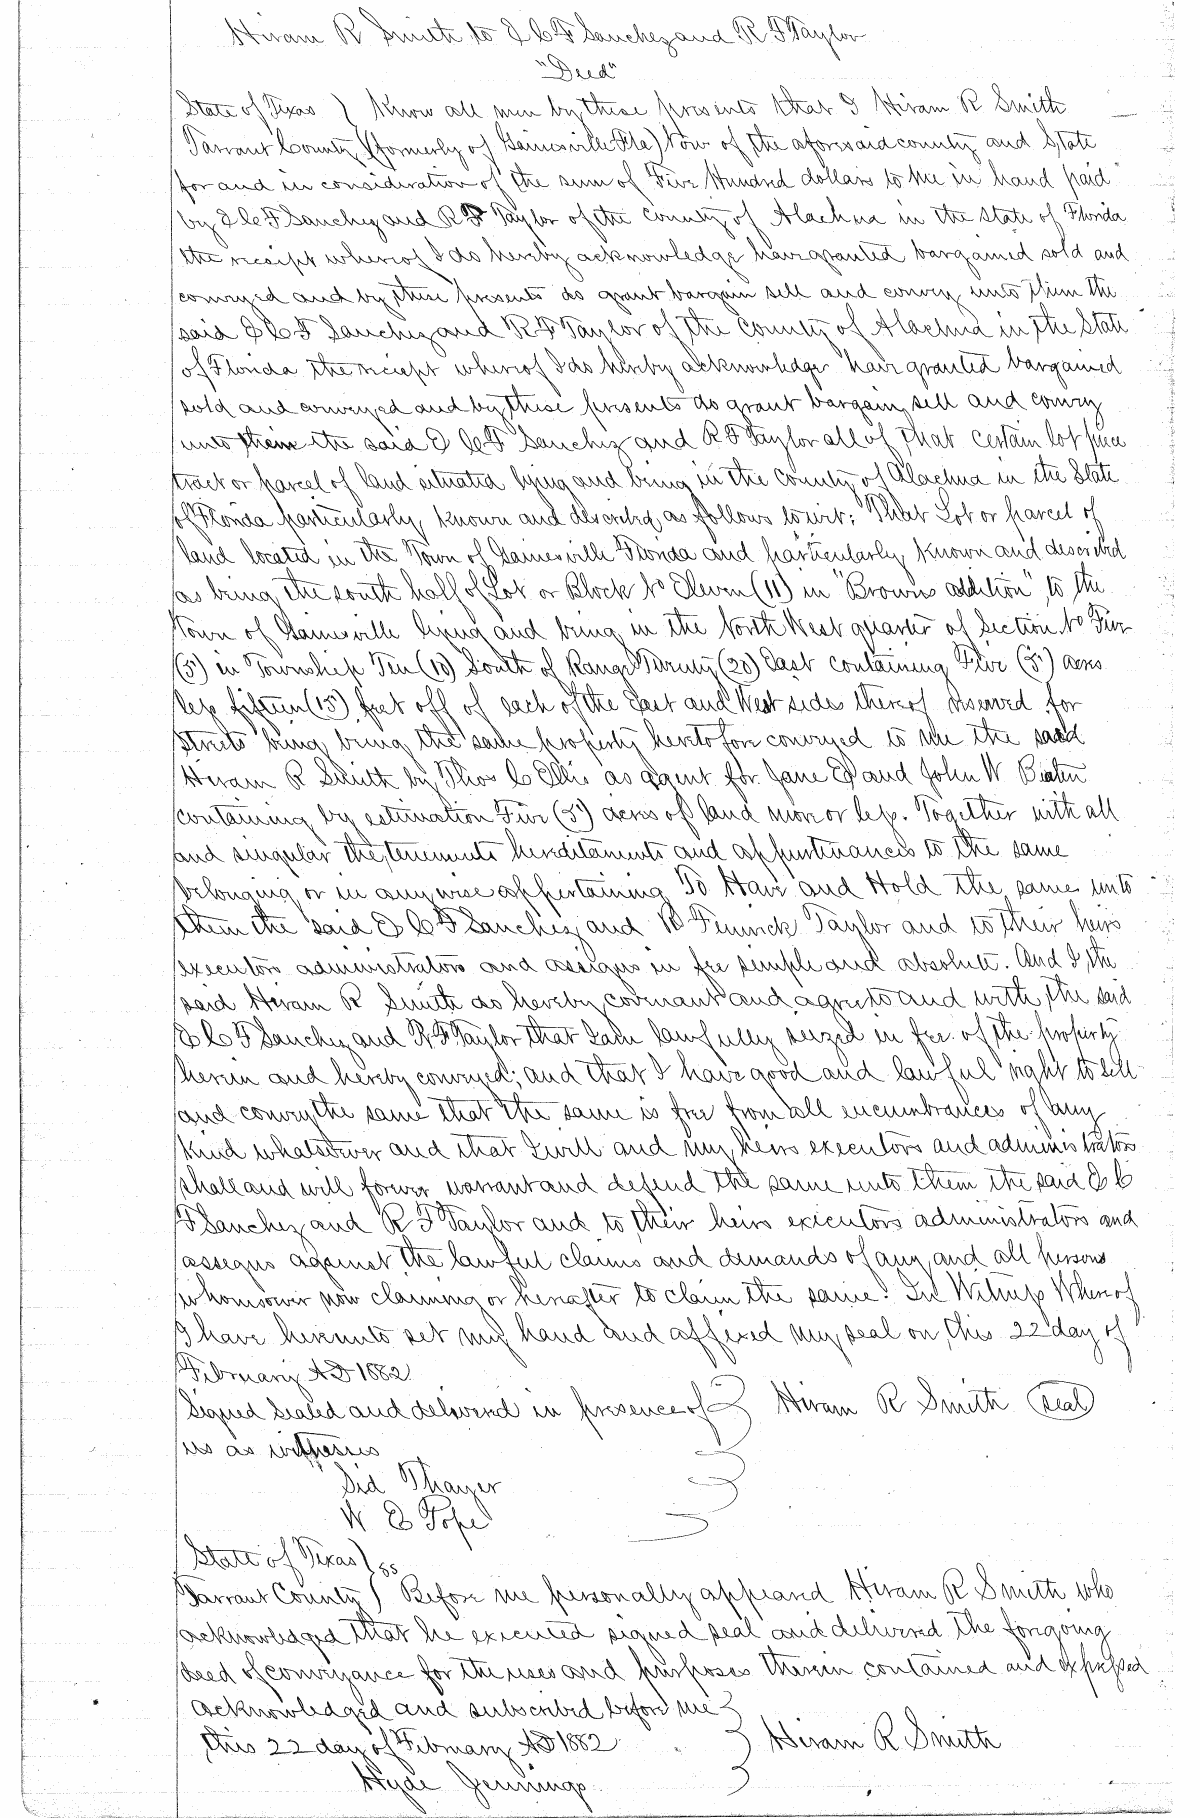 Hiram R Smith to E C F Sanchez and R F Taylor
"Deed"
State of Texas ) Know all men by these presents that I Hiram R Smith
Tarrant County ) (formerly of Gainesville Fla) Now of the aforesaid county and State
for and in consideration of the sum of Five Hundred dollars to me in hand paid
by E C F Sanchez and R F Taylor of the County of Alachua in the State of Florida
the receipt whereof I do hereby acknowledge have granted bargained sold and
conveyed and by these presents do grant bargain sell and convey unto them the
said E C F Sanchez and R F Taylor of the County of Alachua in the State
of Florida the reciept whereof I do hereby acknowledge have granted bargained
sold and conveyed and by these presents do grant bargain sell and convey
unto them the said E C F Sanchez and R F Taylor all of that certain lot piece
tract or parcel of land situated lying and being in the County of Alachua in the State
of Florida particularly known and described as follows to wit: That Lot or parcel of
land located in the Town of Gainesville Florida and particularly known and described
as being the south half of Lot or Block No Eleven (11) in "Browns addition" to the
Town of Gainesville lying and being in the North West quarter of Section No Five
(5) in Township Ten (10) South of Range Twenty (20) East containing Five (5) acres
less fifteen (15) feet off of each of the East and West sides thereof reserved for
Streets being being the same property heretofore conveyed to me the said
Hiram R Smith by Thos C Ellis as agent for Jane E and John W
containing by estimation Five (5) acres of land more or less. Together with all
and singular the tenements hereditaments and appurtinances to the same
belonging or in anywise appertaining To Have and Hold the same unto
them the said E C F Sanchez and R Fenwick Taylor and to their heirs
executors administrators and assigns in fee simple and absolute. And I the
said Hiram R Smith do hereby covenant and agree to and with the said
E C F Sanchez and R F Taylor that I am lawfully seized in fee of the property
herein and hereby conveyed; and that I have good and lawful right to sell
and convey the same that the same is free from all encumbrances of any
kind whatsoever and that I will and my heirs executors and administrators
shall and will forever warrant and defend the same unto them the said E C
F Sanchez and R F Taylor and to their heirs executors administrators and
assigns against the lawful claims and demands of any and all persons
whomsoever now claiming or hereafter to claim the same. In Witness Whereof
I have hereunto set my hand and affixed my seal on this 22 day of
February AD 1882
Signed sealed and delivered in presence of } Hiram R Smith (seal)
us as witnesses
Sid Thayer
W E Pope
State of Texas ) ss
Tarrant County ) Before me personally appeared Hiram R Smith who
acknowledged that he executed signed seal and delivered the foregoing
deed of conveyance for the uses and purposes therein contained and expressed
acknowledged and subscribed before me }
this 22 day of February AD 1882 } Hiram R Smith
Hyde Jennings }